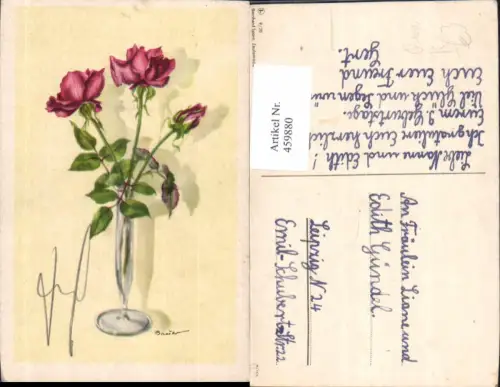 Liebe Nanne und Edith!
Ich gratuliere Euch herzlich
Eurem 9. Geburtstage.
Viel Glück und Segen
Euch Euer Freund
Gert.
Artikel Nr.
459880
An Fräulein Liane und
Edith Gündel.
Leipzig N 24
Emil-Schubert-Str. 22